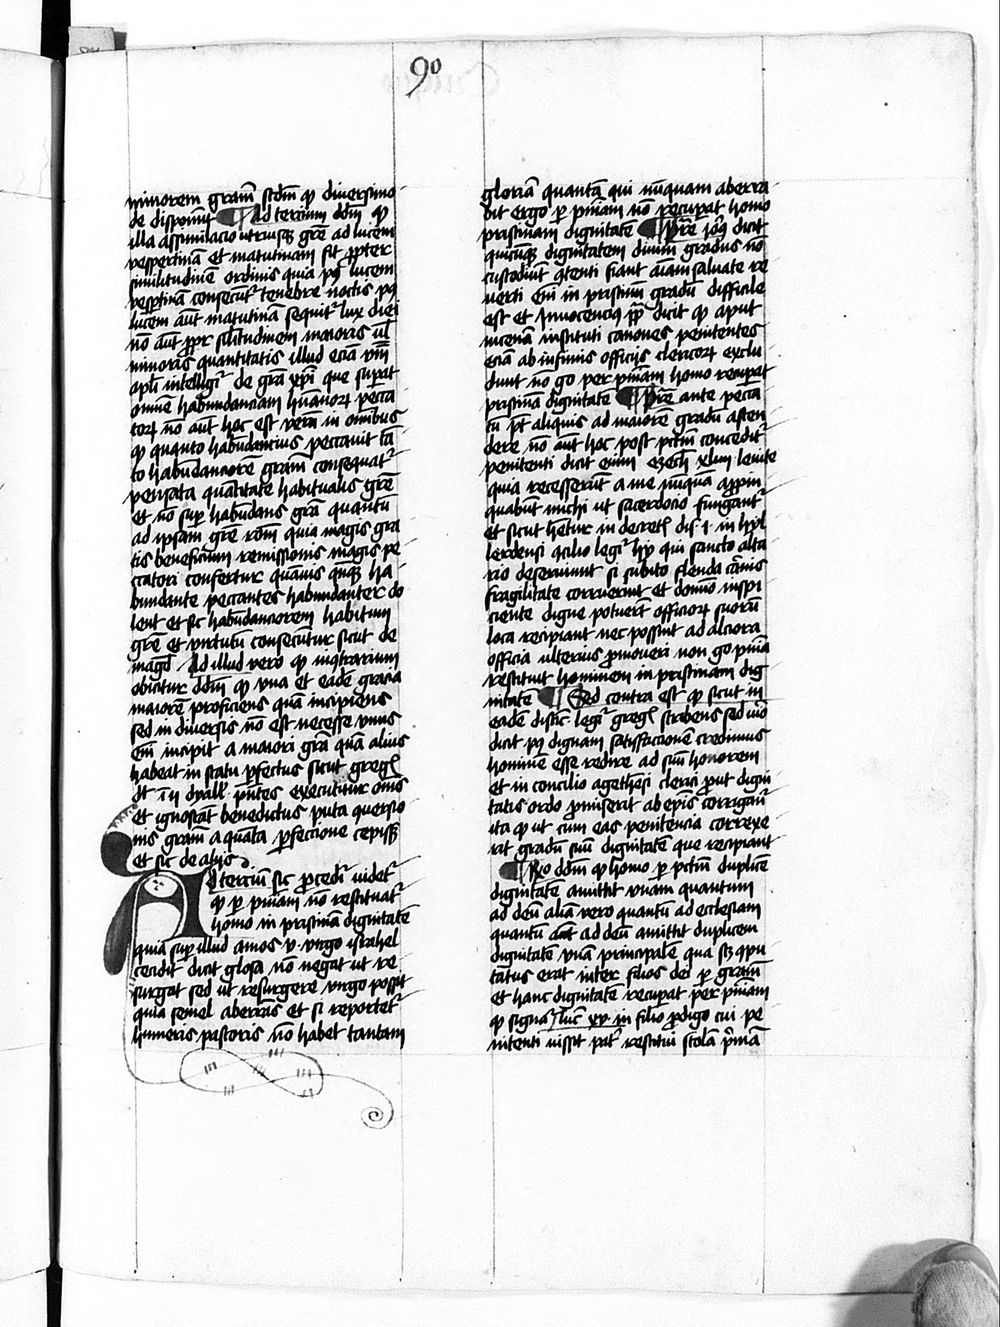 90
minorem gram̄ scd̄m qꝫ diuersimo
de disponūt ¶ Ad tercium dd̄m qꝫ
illa assimilacio utriusqꝫ grē ad lucem
vespertinā et matutinam fit ꝓpter
similitudinē ordinis quia pꝰ lucem
vesꝑtinā consecūtʳ tenebre noctis pꝰ
lucem aūt matutinā sequitʳ lux diei
nō aūt ꝓpꝛ silitudinem maioris ul̄
minoris quantitatis illud eciā v̄m̄
apl̄i intelligiʳ de grā xp̄i que suꝑat
omnē habundanciam hūanoꝝ pecca
toꝝ nō aūt hoc est verū in om̄ibus
qꝫ quanto habūdancius peccauit tā
to habūdanciorē gram̄ consequatʳ
pensata quātitate habitualis grē
et nō suꝑ habūdans grā quantū
ad ipsam grē rōm̄ quia magis gra
tis beneficium remissionis magis pe
ccatori confertur quāuis qn̄qꝫ ha
bundante peccantes habundanter do
lent et sic habūdanciorem habitum
grē et virtutū consecūtur sicut de
magd̄ . Ad illud vero qꝫ in 9trarium
obicitur dd̄m qꝫ vna et eadē gracia
maiorē proficiens quā incipiens
sed in diuersis nō est necesse vnus
em̄ incipit a maiori grā quā alius
habeat in statu ꝑfectus sicut gregꝰ
dt̄ ī ij dyall̄ pn̄tes executitur om̄s
et ignoscāt benedictus puta quersio
nis gram̄ a quāta ꝑfeccione cepiss̄
et sic de alijs
Ad terciū sic ꝓcediʳ uidetʳ
qꝫ ꝑ pniam̄ nō restituatʳ
homo in pristinā dignitatē
quia suꝑ illud amos v virgo israhel
cecidit dicit glosa nō negat ut re
surgat sed ut resurgere virgo possit
quia semel aberrās et si reportetʳ
humeris pastoris nō habet tantam
gloriā quantā qui nūquam aberra
uit ergo ꝑ pniam̄ nō recuꝑat homo
pristinam dignitatē ¶ Pret̄e ioꝰ dicit
quicūqꝫ dignitatem diuini gradus nō
custodiūt 9tenti fiant aiam saluate re
uerti em̄ in pristinū gradū difficile
est et Innocencius pp̄ dicit qꝫ aput
nicenā instituti canones penitentes
eciā ab infimis officijs clericoꝝ exclu
dunt nō go per pniam̄ homo recuꝑat
pristinā dignitatē ¶ Pret̄e ante pecca
tū pt̄ aliquis ad maiorē gradū ascen
dere nō aūt hoc post pctm̄ conceditʳ
penitenti dicit enim ezech xliiij leuite
quia recesserūt a me nūquā appin
quabūt michi ut sacerdocio fungantʳ
et sicut hētur in decretꝭ dis. l in hyl
lerdensi 9cilio legiʳ hij qui sancto alta
rio deseruiunt si subito flenda carnis
fragilitate corruerint et domīo respi
ciente digne potuerīt officioꝝ suorū
loca recipiant nec possint ad alciora
officia ulterius ꝓmoueri non go pnīa
restituit hominem in pristinam dig
nitatē ¶ Sed contra est qꝫ sicut in
eadē distīc. legiʳ gregꝰ scribens secūdio
dicit pꝰ dignam satisfaccionē credimus
hominē esse redire ad suū honorem
et in concilio agethēsi clerici ꝓut digni
tatis ordo ꝓmiserit ab ep̄is corrigāt̄
ita qꝫ ut cum eas penitencia correxe
rit gradū suū dignitatē que recipiant
¶ Rō dd̄m qꝫ homo ꝑ pctm̄ duplicē
dignitatē amittit vnam quantum
ad deū aliā vero quantū ad ecclesiam
quantū aūt ad deū amittit duplicem
dignitatē vnā principalē qua scꝫ 9pu
tatus erat inter filios dei ꝑ gram̄
et hanc dignitatē recuꝑat per pniam̄
qꝫ signaʳ luc̄ xv in filio ꝓdigo cui pe
nitenti iussit patʳ restitui stolā pʳmā